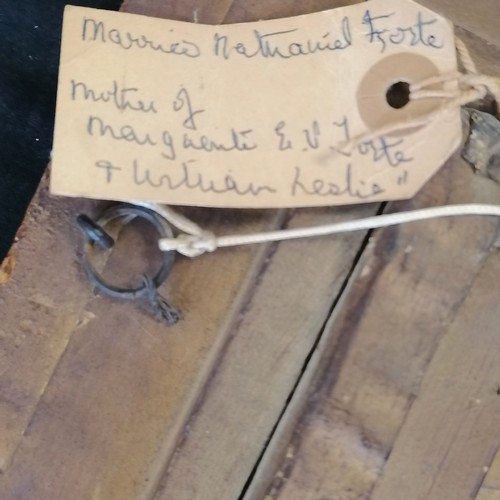 Married Nathaniel Forte
Mother of
Marguerite E. V Forte
+ Leslie "